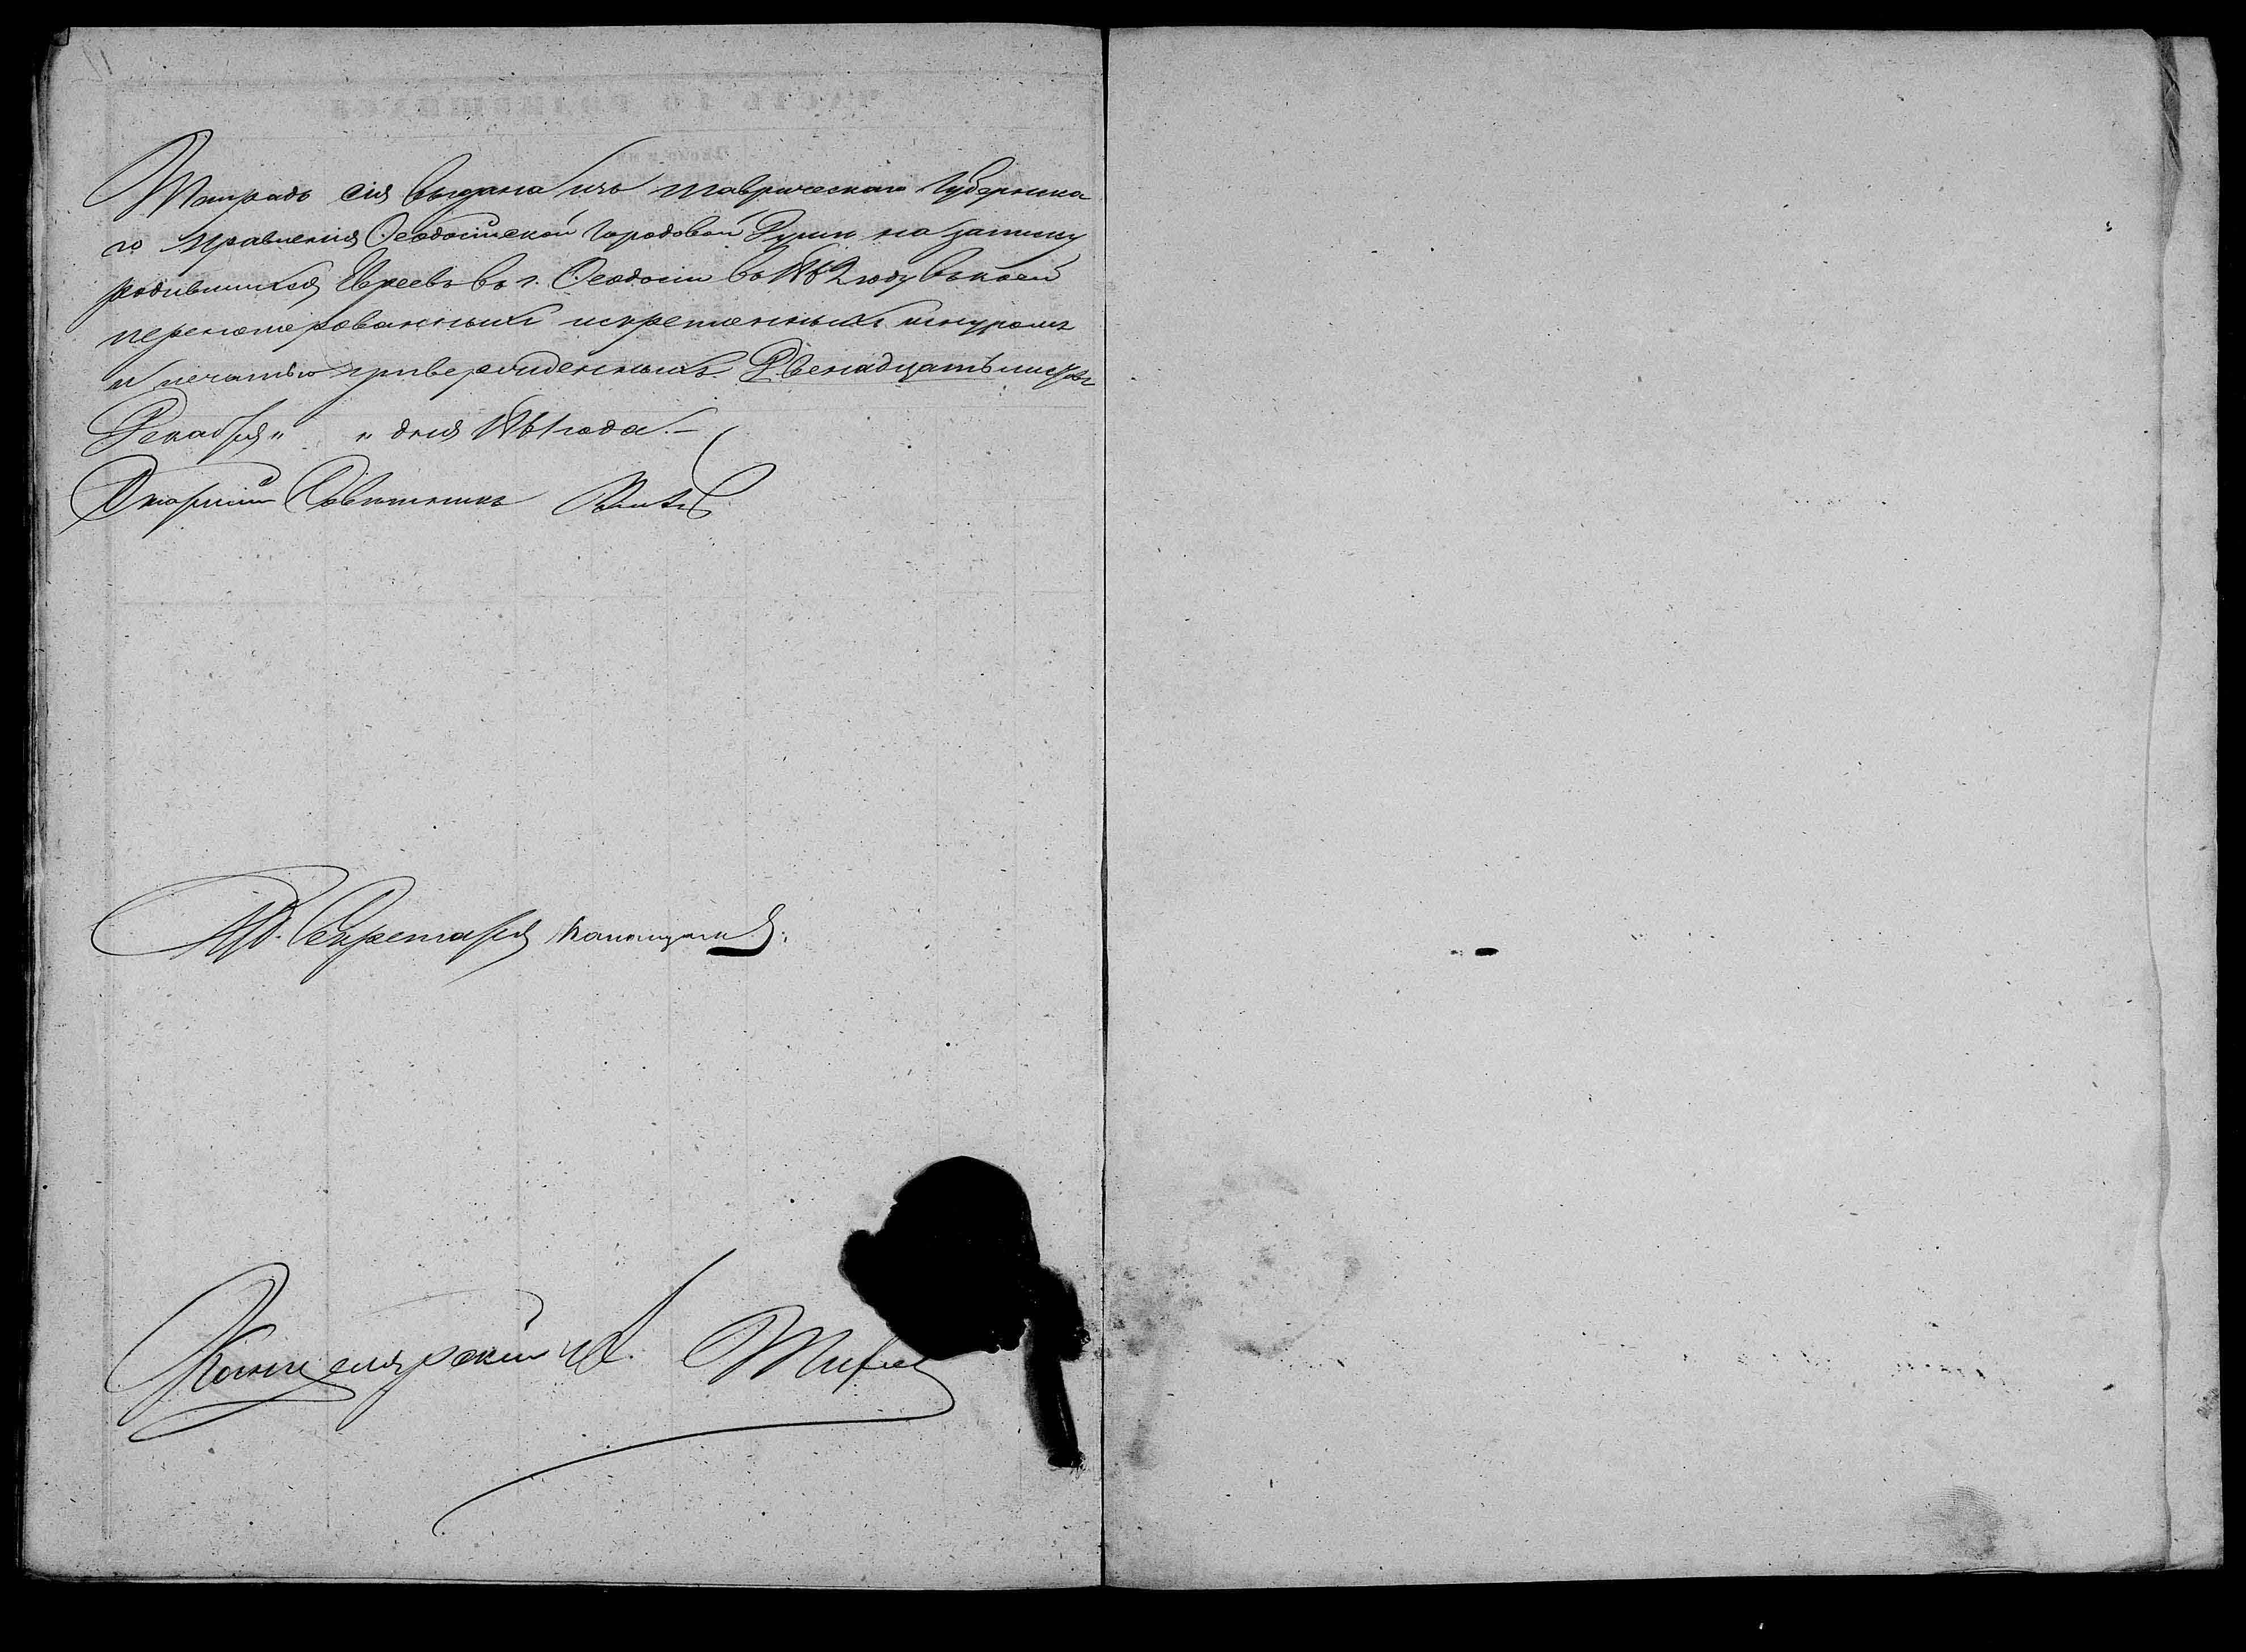 Тетрадь сія выдана изъ Таврическаго Губернска
го Правленія Ѳеодосійской Городовой Думѣ на записку
родившихся Евреевъ въ г. Ѳеодосіи въ 1862 году въ коей
перенумерованныхъ искрепленныхъ шнуромъ
и печатью утвержденныхъ Двенадцать листовъ
Декабря " " дня 1861 года.-
Старшій Совѣтникъ
Секретаря
Канцелярскій